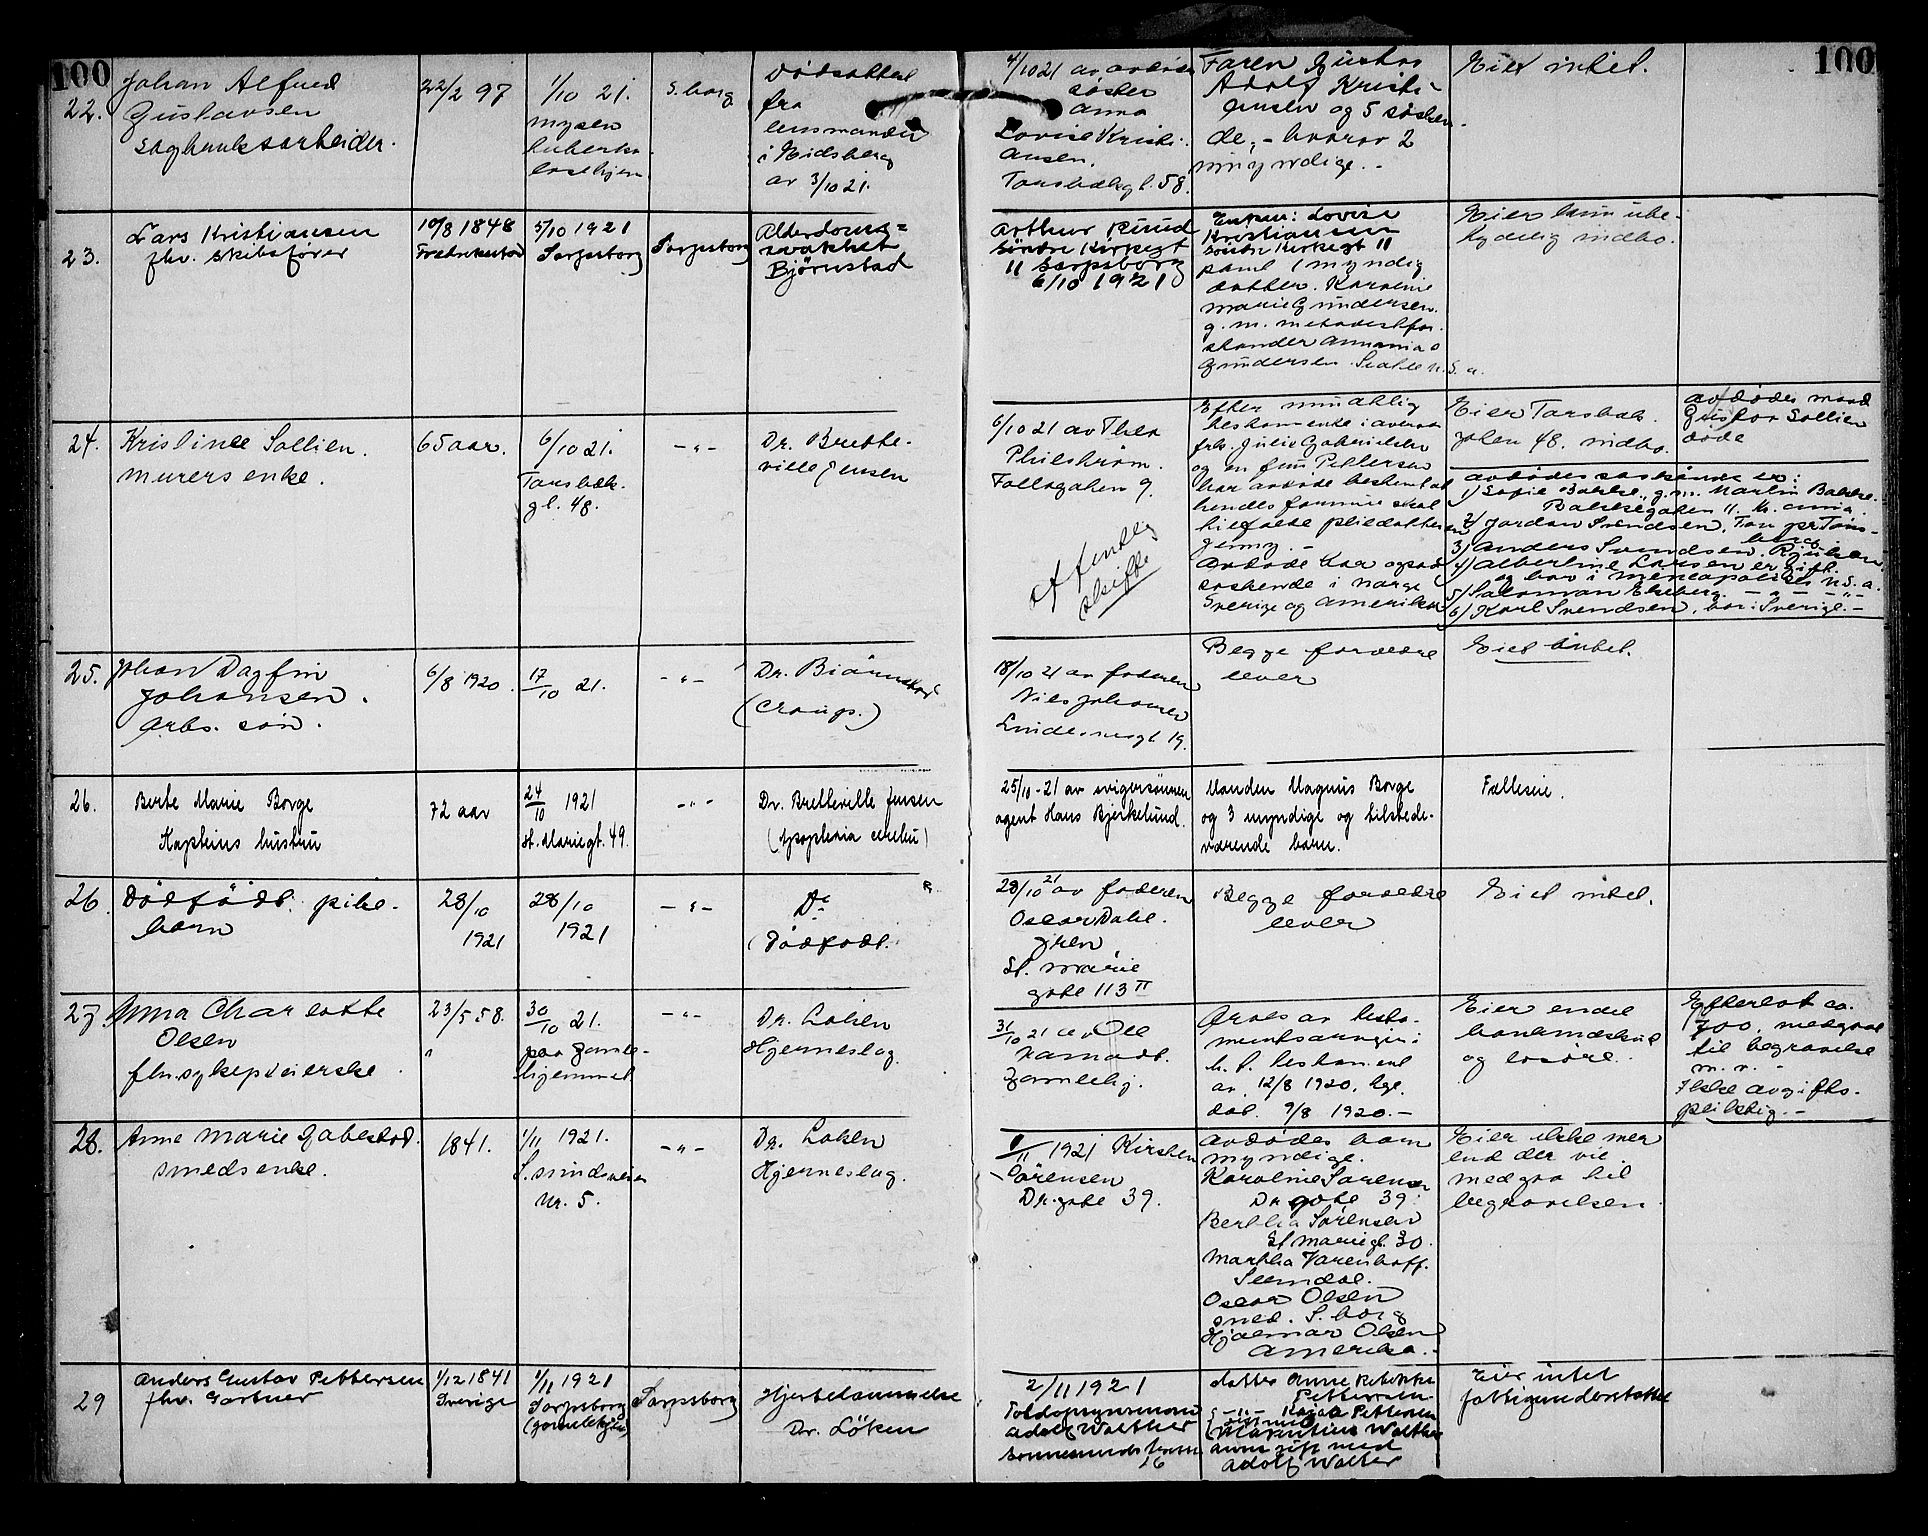 100
100
22.
Johan Alfred
Gustavsen
22/2 97
1/10 21.
mysen
S. borg
Dødsattest
fra
lensmanden
i Eidsberg
av 3/10 21.
4/10 21 av avdødes
søster
Anna
Lovise Kristi-
ansen.
Torsbækgt. 58.
Faren Gustav
Adolf Kristi-
ansen og 5 søsken-
de, - hvorav 2
umyndige. -
Eiet intet.
23.
Lars Kristiansen
fhv. skibsfører
10/8 1848
Fredrikstad
5/10 1921
Sarpsborg
Sarpsborg
Alderdoms=
svakhet
Björnstad
Arthur Ruud
Søndre Kirkegt
11 Sarpsborg
6/10 1921
Enken: Lovise
Kristiansen
Søndr Kirkegt 11
samt 1 myndig
datter. Karoline
Marie Gundersen.
g. m. metodistfor-
stander
Gundersen. Seatle U. S. a.
Eier kun ube-
tydelig indbo.
24.
Kristinee Sollien.
murers enke.
65 aar.
6/10 21.
Torsbæk-
gt. 48.
- " -
Dr. Brette-
ville Jensen
6/10 21 av Thea
Philstrøm.
Tollogaten 9.
offentlig
skifte
Efter mundtlig
testamente i overvær
frk. Julie Gabrielsen
og en fru Pettersen
har avdøde bestemt at
hendes formue skal
tilfalde pleiedatteren
Jenny. -
Avdøde har ogsaa
søskende i Norge
Sverige og Amerika
Eier Torsbæk-
gaten 48. indbo.
avdødes mand
Gustav Sollien
døde
avdødes søskende er:
1) Sofie Bakke, g. m. Martin Bakke.
Bakkegaten 11. Kr.ania.
2) Jordan Svendsen, Tøn pr Tøns-
berg
3) Anders Svendsen. Rjukan
4) Albertine Larsen er gift.
og bor i Meneapolis U. S. a.
5) Salomon Ekeberg. - " - " -
6) Karl Svendsen, bor i Sverige. -
25.
Johan Dagfin
Johansen.
Arbs. søn.
6/8 1920.
17/10 21.
- " -
Dr. Biørnstad
(Croups.)
18/10 21 av faderen
Nils Johansen
Lindesnesgt 19.
Begge forældre
lever
Eiet intet.
26.
Berte Marie Borge
Kapteins hustru
72 aar
24/10 1921
St. Mariegt. 49.
- " -
Dr. Bretteville Jensen
25/10 - 21 av svigersønnen
agent Hans Bjerkelund.
Manden Magnus Borge
og 3 myndige og tilstede-
værende barn.
Fælleseie.
26
Dødfødt pike-
barn
28/10
1921
28/10
1921
- " -
Dº
(Dødfødt.
28/10 21 av faderen
Oscar Dahl-
gren
St. Marie
gate 113 II
Begge forældre
lever
Eiet intet.
27.
Anna Charlotte
Olsen
fhv. sykepleierske
23/5 58.
30/10 21.
paa Gamle-
hjemmet
- " -
Dr. Løken
Hjerneslag.
31/10 21 av Ole
Gamlehj.
Arves av testa-
mentsarvinger i
h. t. testament
av 12/8 1920.
dat. 9/8 1920. -
Eier endel
bankindskud
og løsøre.
Efterlot ca.
700. medgaar
til begravelse
m. v. -
Ikke avgifts-
pliktig. -
28.
Anne Marie Gabestad.
smeds enke.
1841.
1/11 1921.
Nr. 5.
- " -
Dr. Løken
Hjerneslag.
1/11 1921 Kirsten
Sørensen
Dr. gate 39.
Avdødes barn
myndige.
Karoline Sørensen
Dr. gate 39.
Bertha Sørensen
St Mariegt. 30.
Martha Varenhoff.
Oscar Olsen
smed. S. borg
Hjalmar Olsen
Amerika. -
Eier ikke mer
end der vil
medgaa til
begravelsen.
29
Anders Gustav Pettersen
fhv. Gartner
1/12 1841
Sverige
1/11 1921
Sarpsborg
(Gamlehjem)
Sarpsborg
Hjertelammelse
Dr. Löken
2/11 1921
Toldopsynsmand
Adolf Walther
16
datter Anne Rebekka
Pettersen
- " - Kaja Pettersen
Adolf Walter
Eier intet
fattigunderstøttet